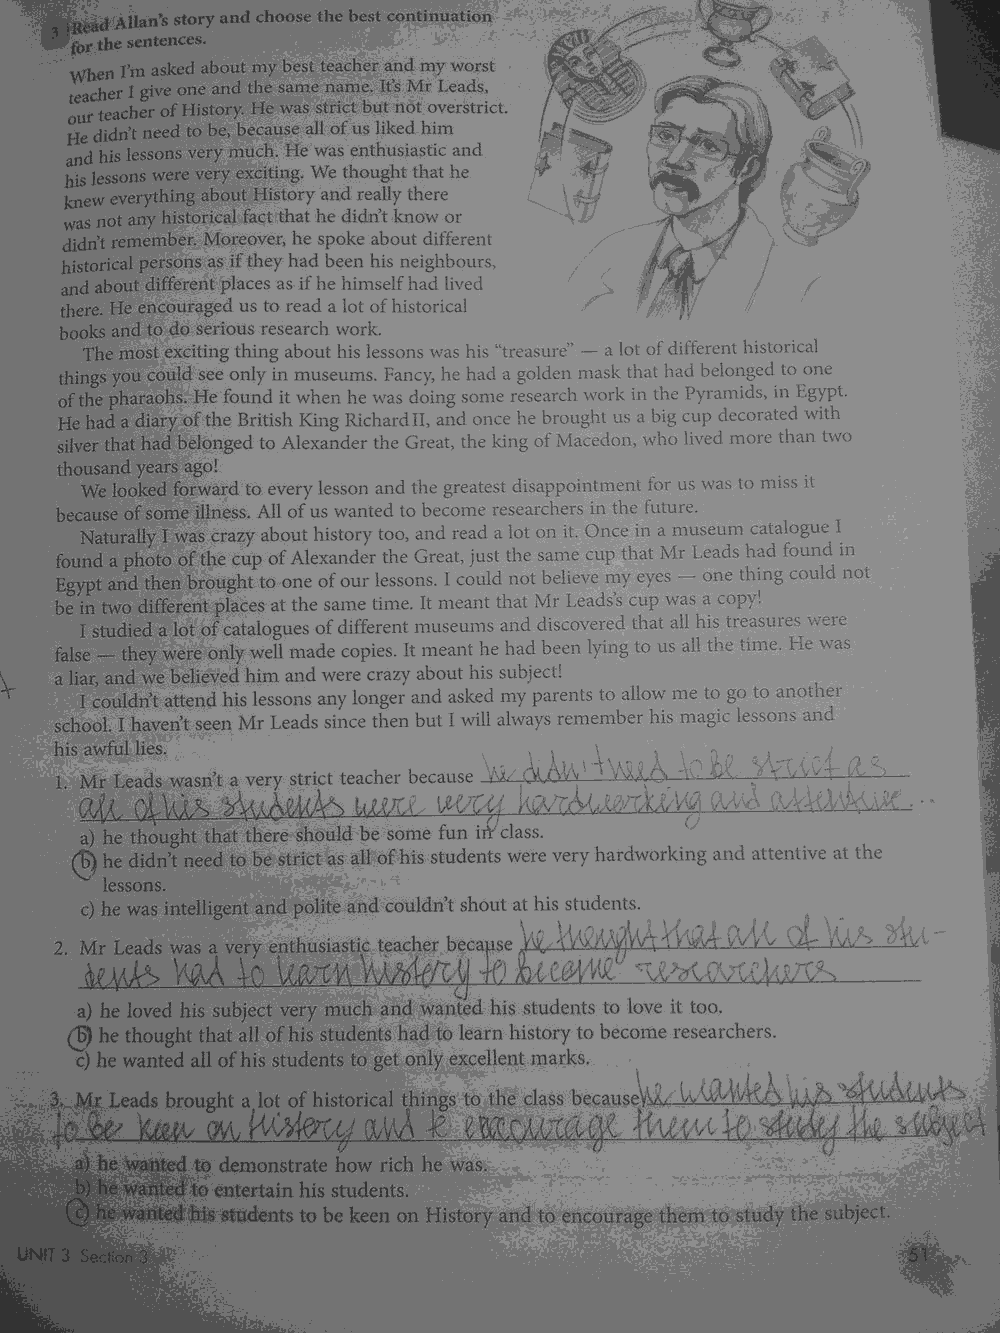 3 Read Allan's story and choose the best continuation
for the sentences.
When I'm asked about my best teacher and my worst
teacher I give one and the same name. It's Mr Leads,
our teacher of History. He was strict but not overstrict.
He didn't need to be, because all of us liked him
and his lessons very much. He was enthusiastic and
his lessons were very exciting. We thought that he
knew everything about History and really there
was not any historical fact that he didn't know or
didn't remember. Moreover, he spoke about different
historical persons as if they had been his neighbours,
and about different places as if he himself had lived
there. He encouraged us to read a lot of historical
books and to do serious research work.
The most exciting thing about his lessons was his "treasure" — a lot of different historical
things you could see only in museums. Fancy, he had a golden mask that had belonged to one
of the pharaohs. He found it when he was doing some research work in the Pyramids, in Egypt.
He had a diary of the British King Richard II, and once he brought us a big cup decorated with
silver that had belonged to Alexander the Great, the king of Macedon, who lived more than two
thousand years ago!
We looked forward to every lesson and the greatest disappointment for us was to miss it
because of some illness. All of us wanted to become researchers in the future.
Naturally I was crazy about history too, and read a lot on it. Once in a museum catalogue I
found a photo of the cup of Alexander the Great, just the same cup that Mr Leads had found in
Egypt and then brought to one of our lessons. I could not believe my eyes — one thing could not
be in two different places at the same time. It meant that Mr Leads's cup was a copy!
I studied a lot of catalogues of different museums and discovered that all his treasures were
false — they were only well made copies. It meant he had been lying to us all the time. He was
a liar, and we believed him and were crazy about his subject!
I couldn't attend his lessons any longer and asked my parents to allow me to go to another
school. I haven't seen Mr Leads since then but I will always remember his magic lessons and
his awful lies.
1. Mr Leads wasn't a very strict teacher because he didn't need to be strict as
all of his students were very hardworking and attentive...
a) he thought that there should be some fun in class.
b) he didn't need to be strict as all of his students were very hardworking and attentive at the
lessons.
c) he was intelligent and polite and couldn't shout at his students.
2. Mr Leads was a very enthusiastic teacher because he thought that all of his stu-
dents had to learn history to become researchers
a) he loved his subject very much and wanted his students to love it too.
b) he thought that all of his students had to learn history to become researchers.
c) he wanted all of his students to get only excellent marks.
3. Mr Leads brought a lot of historical things to the class because he wanted his students
to be keen on History and to encourage them to study the subject
a) he wanted to demonstrate how rich he was.
b) he wanted to entertain his students.
c) he wanted his students to be keen on History and to encourage them to study the subject.
UNIT 3 Section 3
51